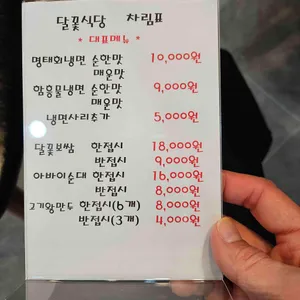 달꽃식당 차림표
* 대표메뉴 *
명태회냉면 순한맛 10,000원
매운맛
함흥물냉면 순한맛 9,000원
매운맛
냉면사리추가 5,000원
달꽃보쌈 한접시 18,000원
반접시 9,000원
아바이순대 한접시 16,000원
반접시 8,000원
고기왕만두 한접시(6개) 8,000원
반접시(3개) 4,000원